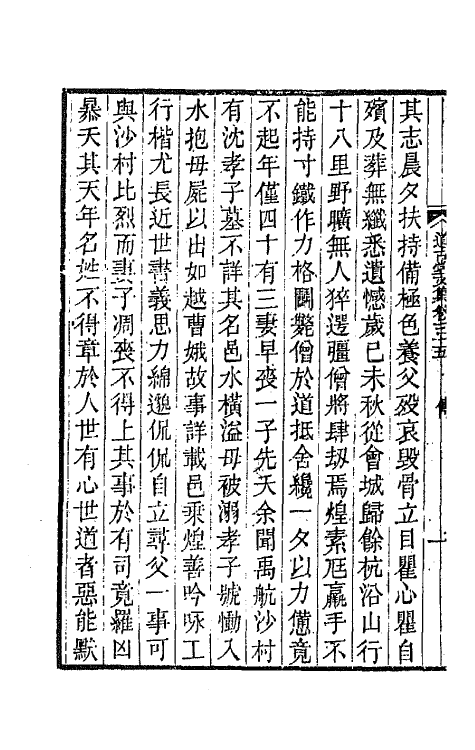 道古堂文集卷三十五　傳　一
其志晨夕扶持備極色養父歿哀毀骨立目瞿心瞿自
殯及葬無纖悉遺憾歲已未秋從會城歸餘杭沿山行
十八里野曠無人猝遌彊僧將肆刼焉煌素尫羸手不
能持寸鐵作力格鬬斃僧於道抵舍纔一夕以力憊竟
不起年僅四十有三妻早喪一子先夭余聞禹航沙村
有沈孝子墓不詳其名邑水橫溢母被溺孝子號慟入
水抱母屍以出如越曹娥故事詳載邑乘煌善吟咏工
行楷尤長近世書義思力綿邈侃侃自立尋父一事可
與沙村比烈而妻子凋喪不得上其事於有司竟羅凶
㬥夭其天年名姓不得章於人世有心世道者惡能默